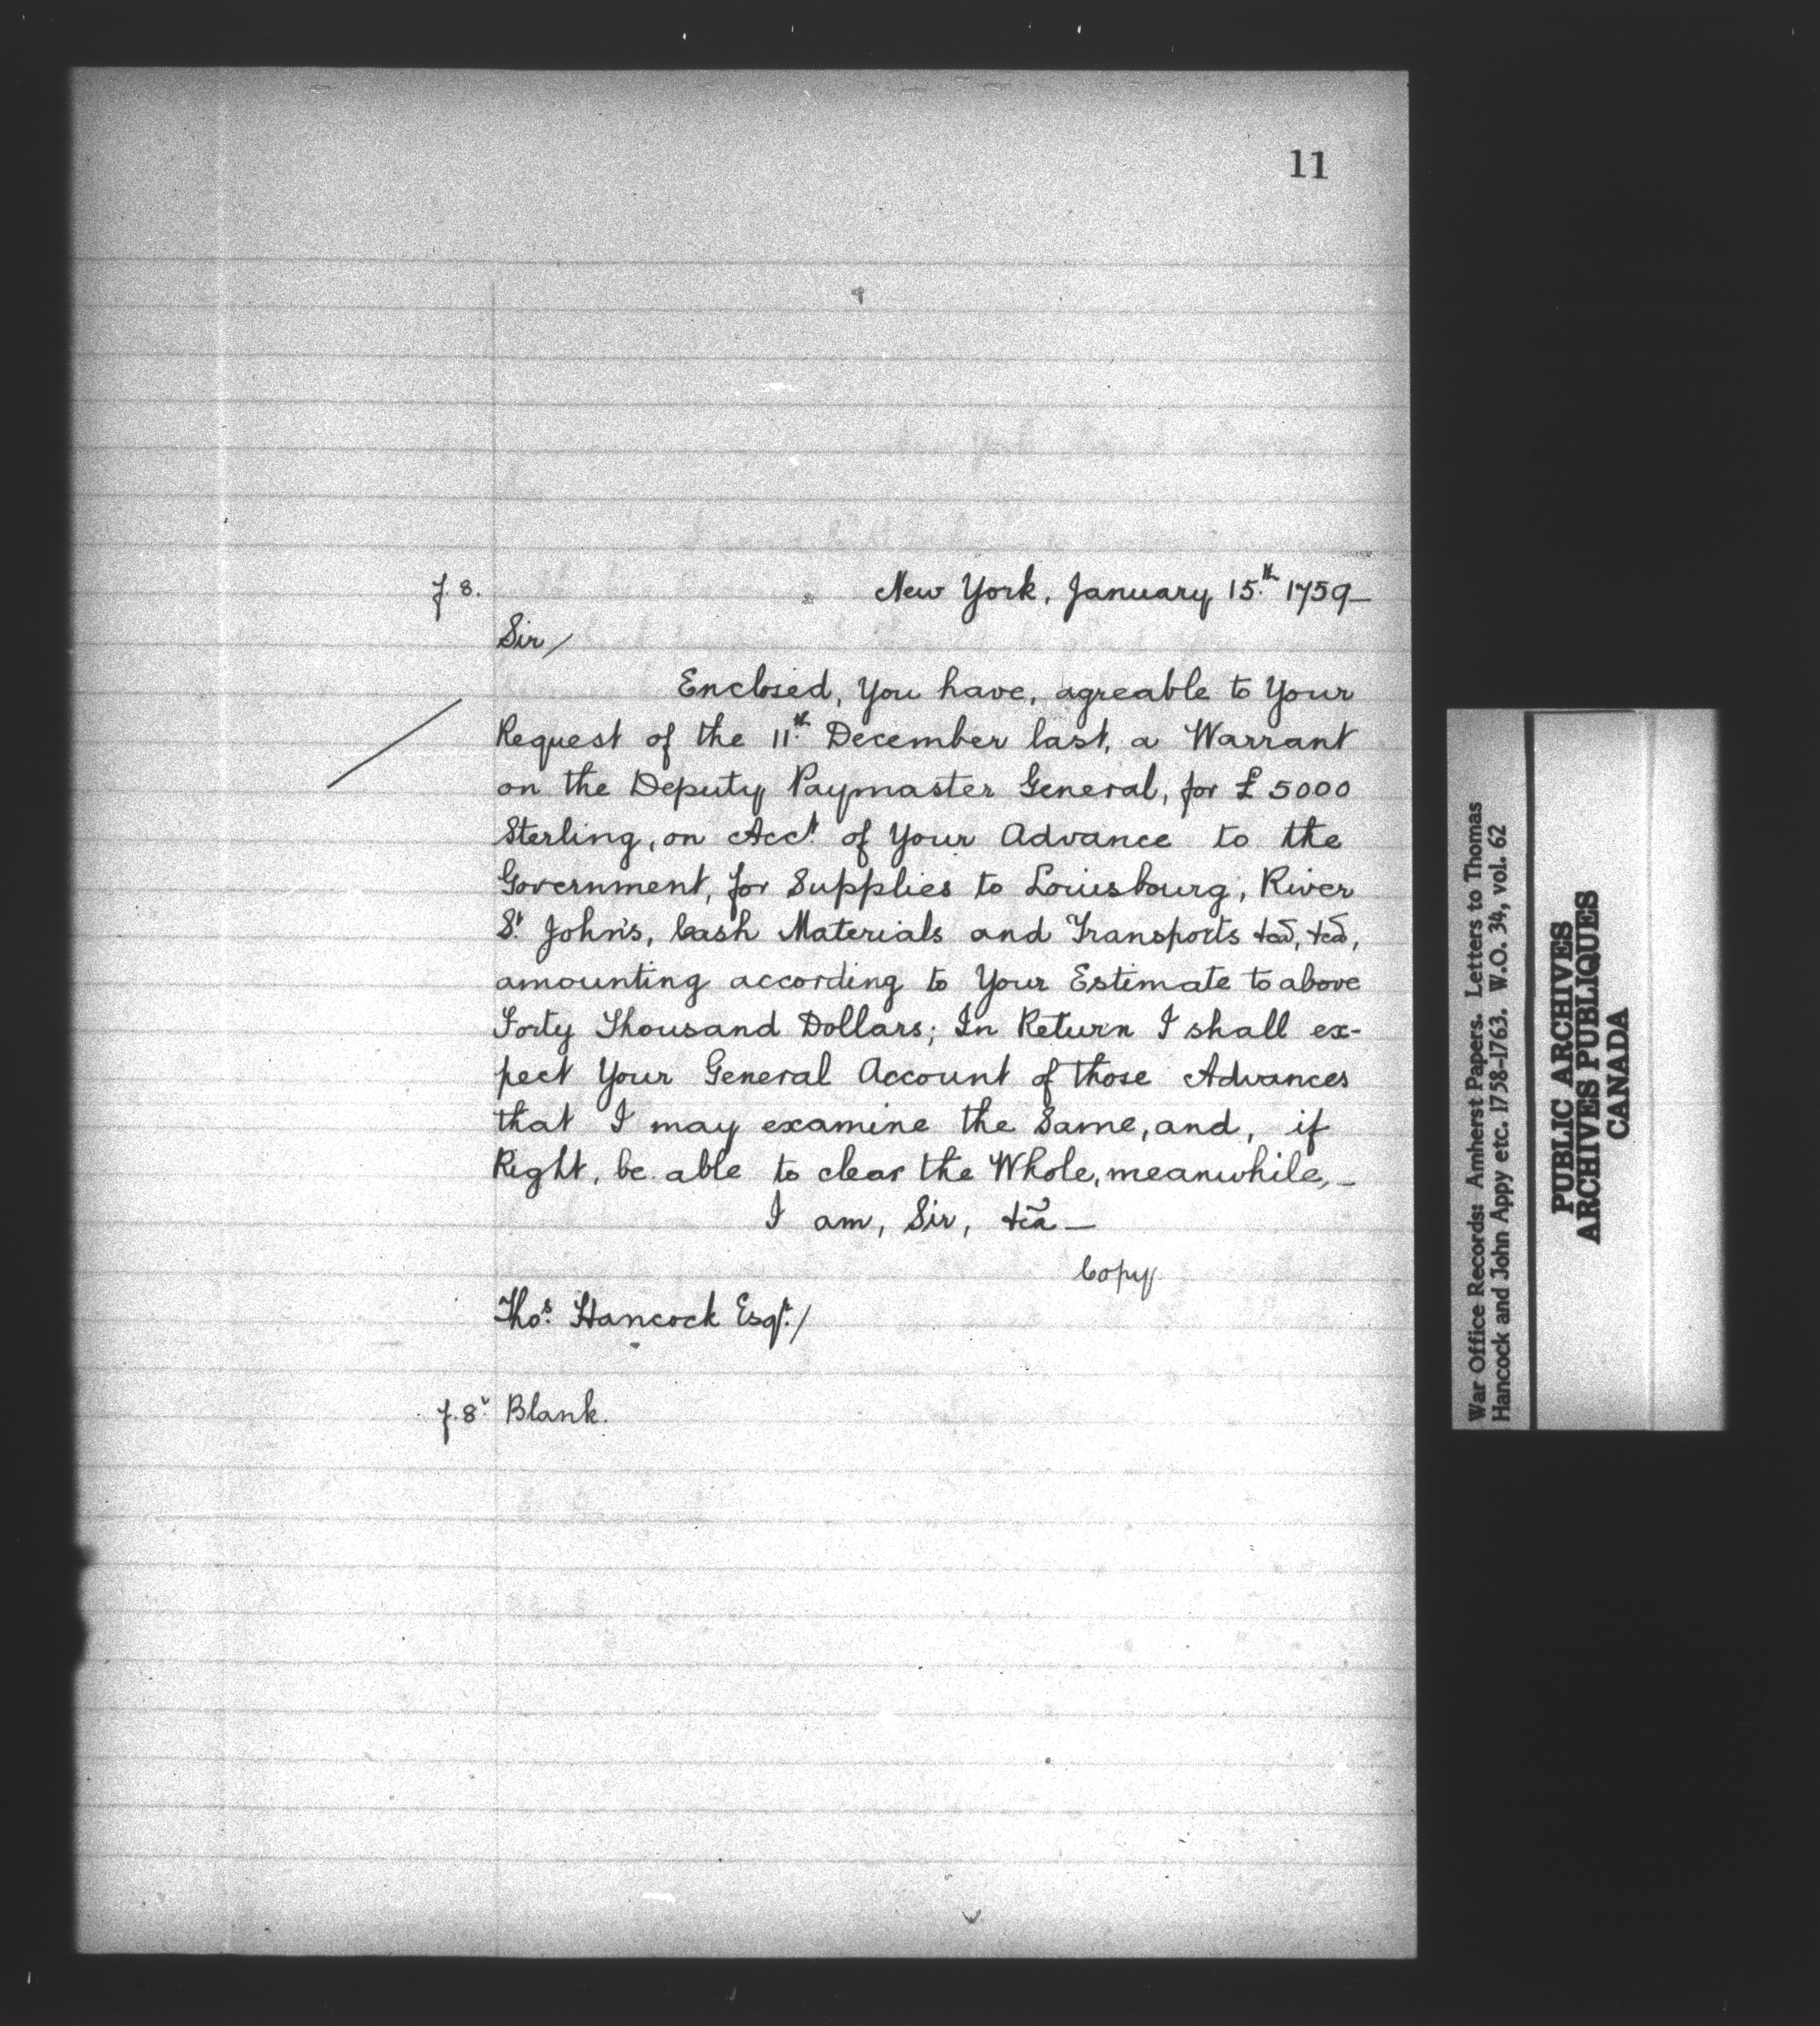 11
f. 8.
New York, January 15.th 1759_
Sir/
Enclosed, You have, agreable to Your
Request of the 11.th December last, a Warrant
on the Deputy Paymaster General, for £5000
Sterling, on Acc.t of Your Advance to the
Government, for Supplies to Louisbourg, River
S.t John's, Cash Materials and Transports &ca, &ca,
amounting according to Your Estimate to above
Forty Thousand Dollars; In Return I shall ex-
pect Your General Account of those Advances
that I may examine the Same, and, if
Right, be able to clear the Whole, meanwhile,_
I am, Sir, &ca_
Copy.
Tho.s Hancock Esq.r/
f. 8.v Blank.
War Office Records: Amherst Papers. Letters to Thomas
Hancock and John Appy etc. 1758-1763. W.O. 34, vol. 62
PUBLIC ARCHIVES
ARCHIVES PUBLIQUES
CANADA